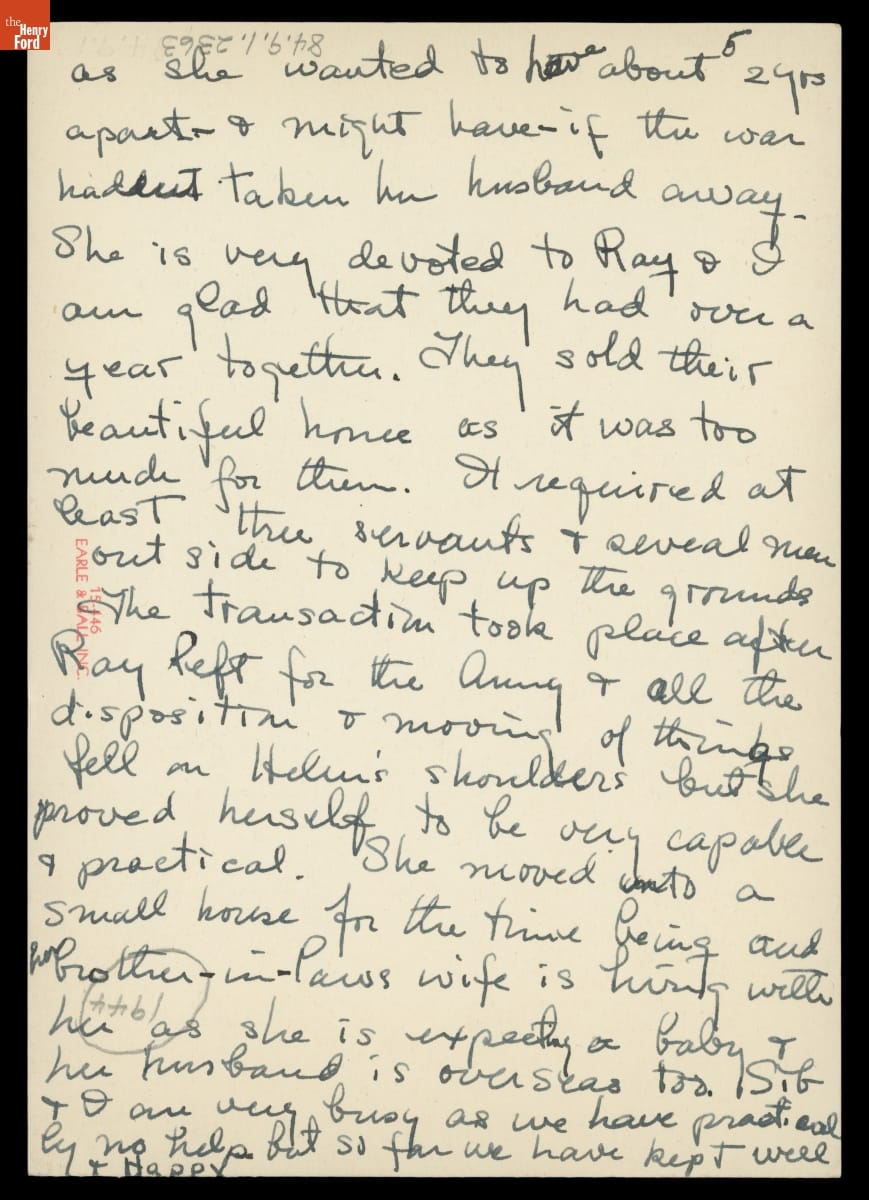 the
Henry
Ford
84.9.1.2363
as she wanted to have about 5 2 yrs
apart - & might have - if the war
haddent taken her husband away.
She is very devoted to Ray & I
am glad that they had over a
year together. They sold their
beautiful home as it was too
much for them. It required at
least three servants & several men
out side to keep up the grounds
The transaction took place after
Ray left for the Army & all the
disposition & moving of things
fell on Helen's shoulders but she
proved herself to be very capable
& practical. She moved into a
small house for the time being and
her brother-in-laws wife is living with
her as she is expecting a baby &
her husband is overseas too. Sib
& I are very busy as we have practical
ly no help but so far we have kept well
& Happy
1944
15146
EARLE & CALL INC.